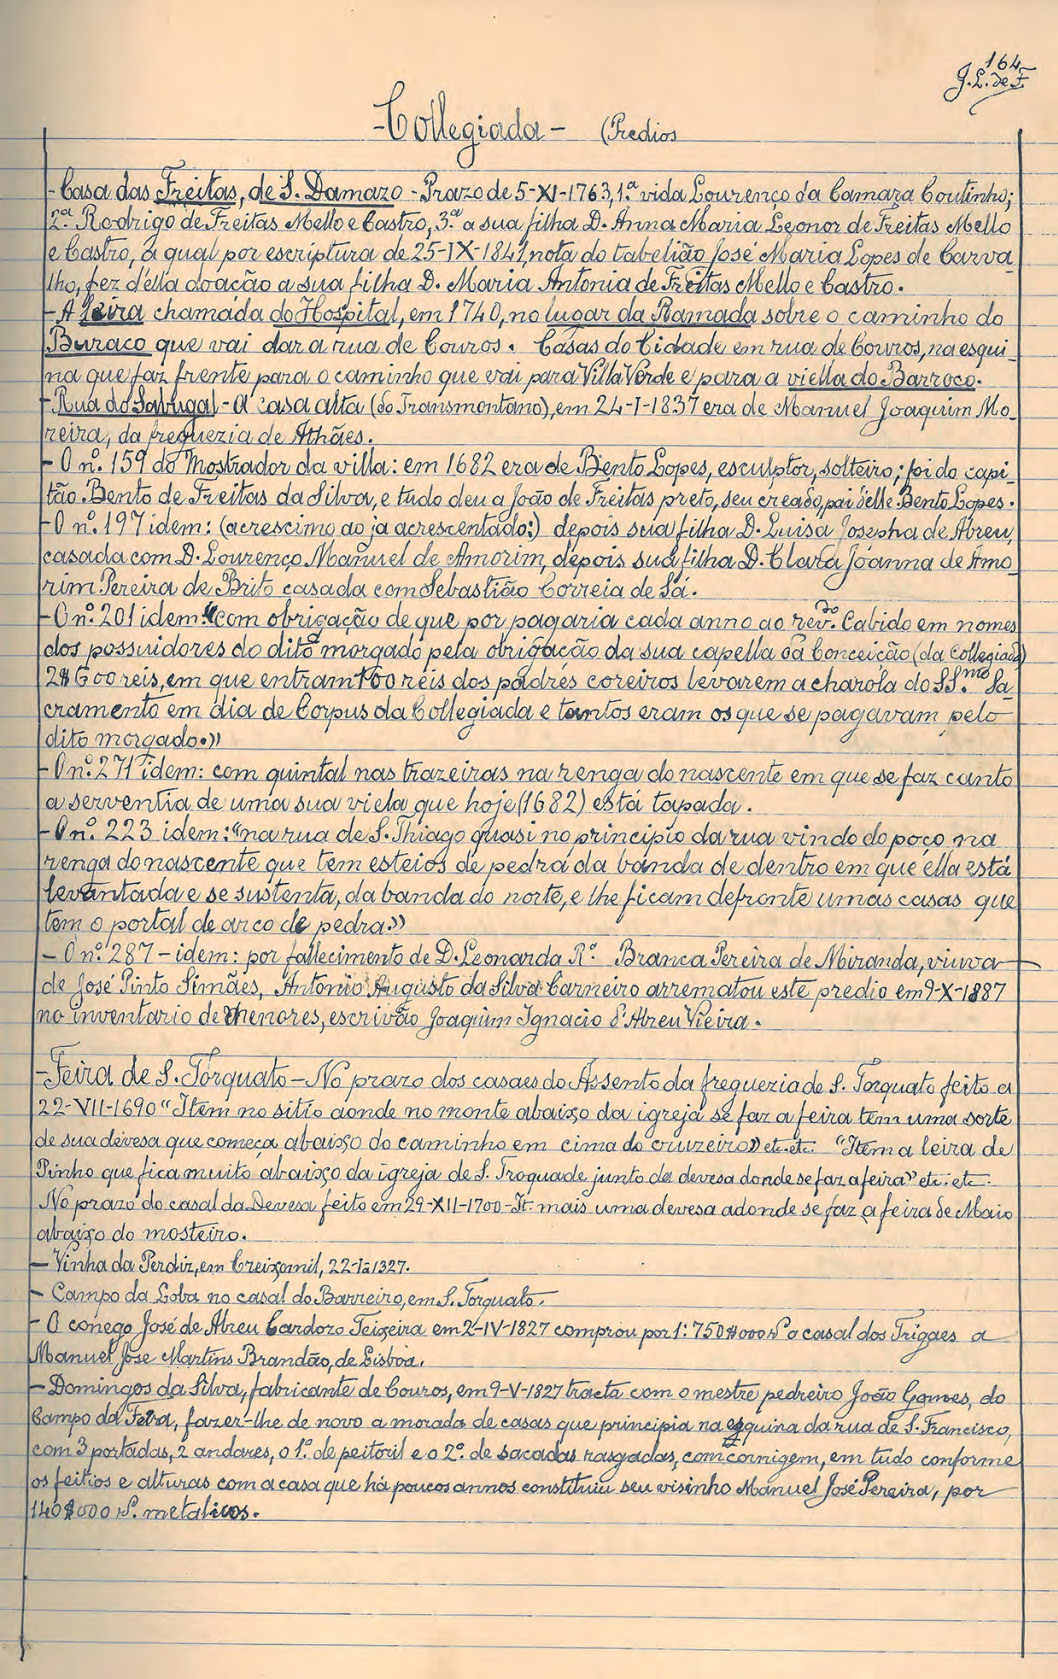 164
J. L. de F.
- Collegiada - (Predios
- Casa das Freitas, de S. Damazo - Prazo de 5-XI-1763, 1.ª vida Lourenço da Camara Coutinho;
2.ª Rodrigo de Freitas Mello e Castro, 3.ª a sua filha D. Anna Maria Leonor de Freitas Mello
e Castro, a qual por escriptura de 25-IX-1841, nota do tabelião José Maria Lopes de Carva_
lho, fez d'ella doação a sua filha D. Maria Antonia de Freitas Mello e Castro.
- A leira chamada do Hospital, em 1740, no lugar da Ramada sobre o caminho do
Buraco que vai dar a rua de Couros. Casas do Cidade em rua de Couros, na esqui_
na que faz frente para o caminho que vai para Villa Verde e para a viella do Barroco.
- Rua do Sabugal - A casa alta (do Transmontano), em 24-I-1837 era de Manuel Joaquim Mo_
reira, da freguezia de Athães.
- O n.º 159 do Mostrador da villa: em 1682 era de Bento Lopes, esculptor, solteiro; foi do capi_
tão Bento de Freitas da Silva, e tudo deu a João de Freitas preto, seu creado, pai d'elle Bento Lopes.
- O n.º 197 idem: (acrescimo ao ja acrescentado:) depois sua filha D. Luisa Josepha de Abreu,
casada com D. Lourenço Manuel de Amorim, depois sua filha D. Clara Joanna de Amo_
rim Pereira de Brito casada com Sebastião Correia de Sá.
- O n.º 201 idem: "com obrigação de que por pagaria cada anno ao rev.do Cabido em nomes
dos possuidores do dito morgado pela obrigação da sua capella da Conceição (da Collegiada)
2$600 reis, em que entram 100 reis dos padres coreiros levarem a charola do SS.mo Sa_
cramento em dia de Corpus da Collegiada e tantos eram os que se pagavam pelo
dito morgado.»
- O n.º 271 idem: com quintal nas trazeiras na renga do nascente em que se faz canto
a serventia de uma sua viela que hoje (1682) está tapada.
- O n.º 223 idem: "na rua de S. Thiago quasi no principio da rua vindo do poço na
renga do nascente que tem esteios de pedra da banda de dentro em que ella está
levantada e se sustenta, da banda do norte, e lhe ficam defronte umas casas que
tem o portal de arco de pedra.»
- O n.º 287 - idem: por fallecimento de D. Leonarda R.º Branca Pereira de Miranda, viuva
de José Pinto Simães, Antonio Augusto da Silva Carneiro arrematou este predio em 9-X-1887
no inventario de menores, escrivão Joaquim Ignacio d'Abreu Vieira.
- Feira de S. Torquato - No prazo dos casaes do Assento da freguezia de S. Torquato feito a
22-VII-1690 "Item no sitio aonde no monte abaixo da igreja se faz a feira tem uma sorte
de sua devesa que começa abaixo do caminho em cima do cruzeiro» etc. etc. "Item a leira de
Pinho que fica muito abaixo da igreja de S. Troquade junto da devesa donde se faz a feira" etc. etc.
No prazo do casal da Devesa feito em 29-XII-1700 - It. mais uma devesa adonde se faz a feira de Maio
abaixo do mosteiro.
- Vinha da Perdiz, em Creixomil, 1327.
- Campo da Loba no casal do Barreiro, em S. Torquato.
- O conego José de Abreu Cardozo Teixeira em 2-IV-1827 comprou por 1:750$000 rs o casal dos Trigaes a
Manuel José Martins Brandão, de Lisboa.
- Domingos da Silva, fabricante de Couros, em 9-V-1827 tracta com o mestre pedreiro João Gomes, do
Campo da Feira, fazer-lhe de novo a morada de casas que principia na esquina da rua de S. Francisco,
com 3 portadas, 2 andares, o 1.º de peitoril e o 2.º de sacadas rasgadas, com cornigem, em tudo conforme
os feitios e alturas com a casa que há poucos annos constituiu seu visinho Manuel José Pereira, por
140$000 rs. metalicos.